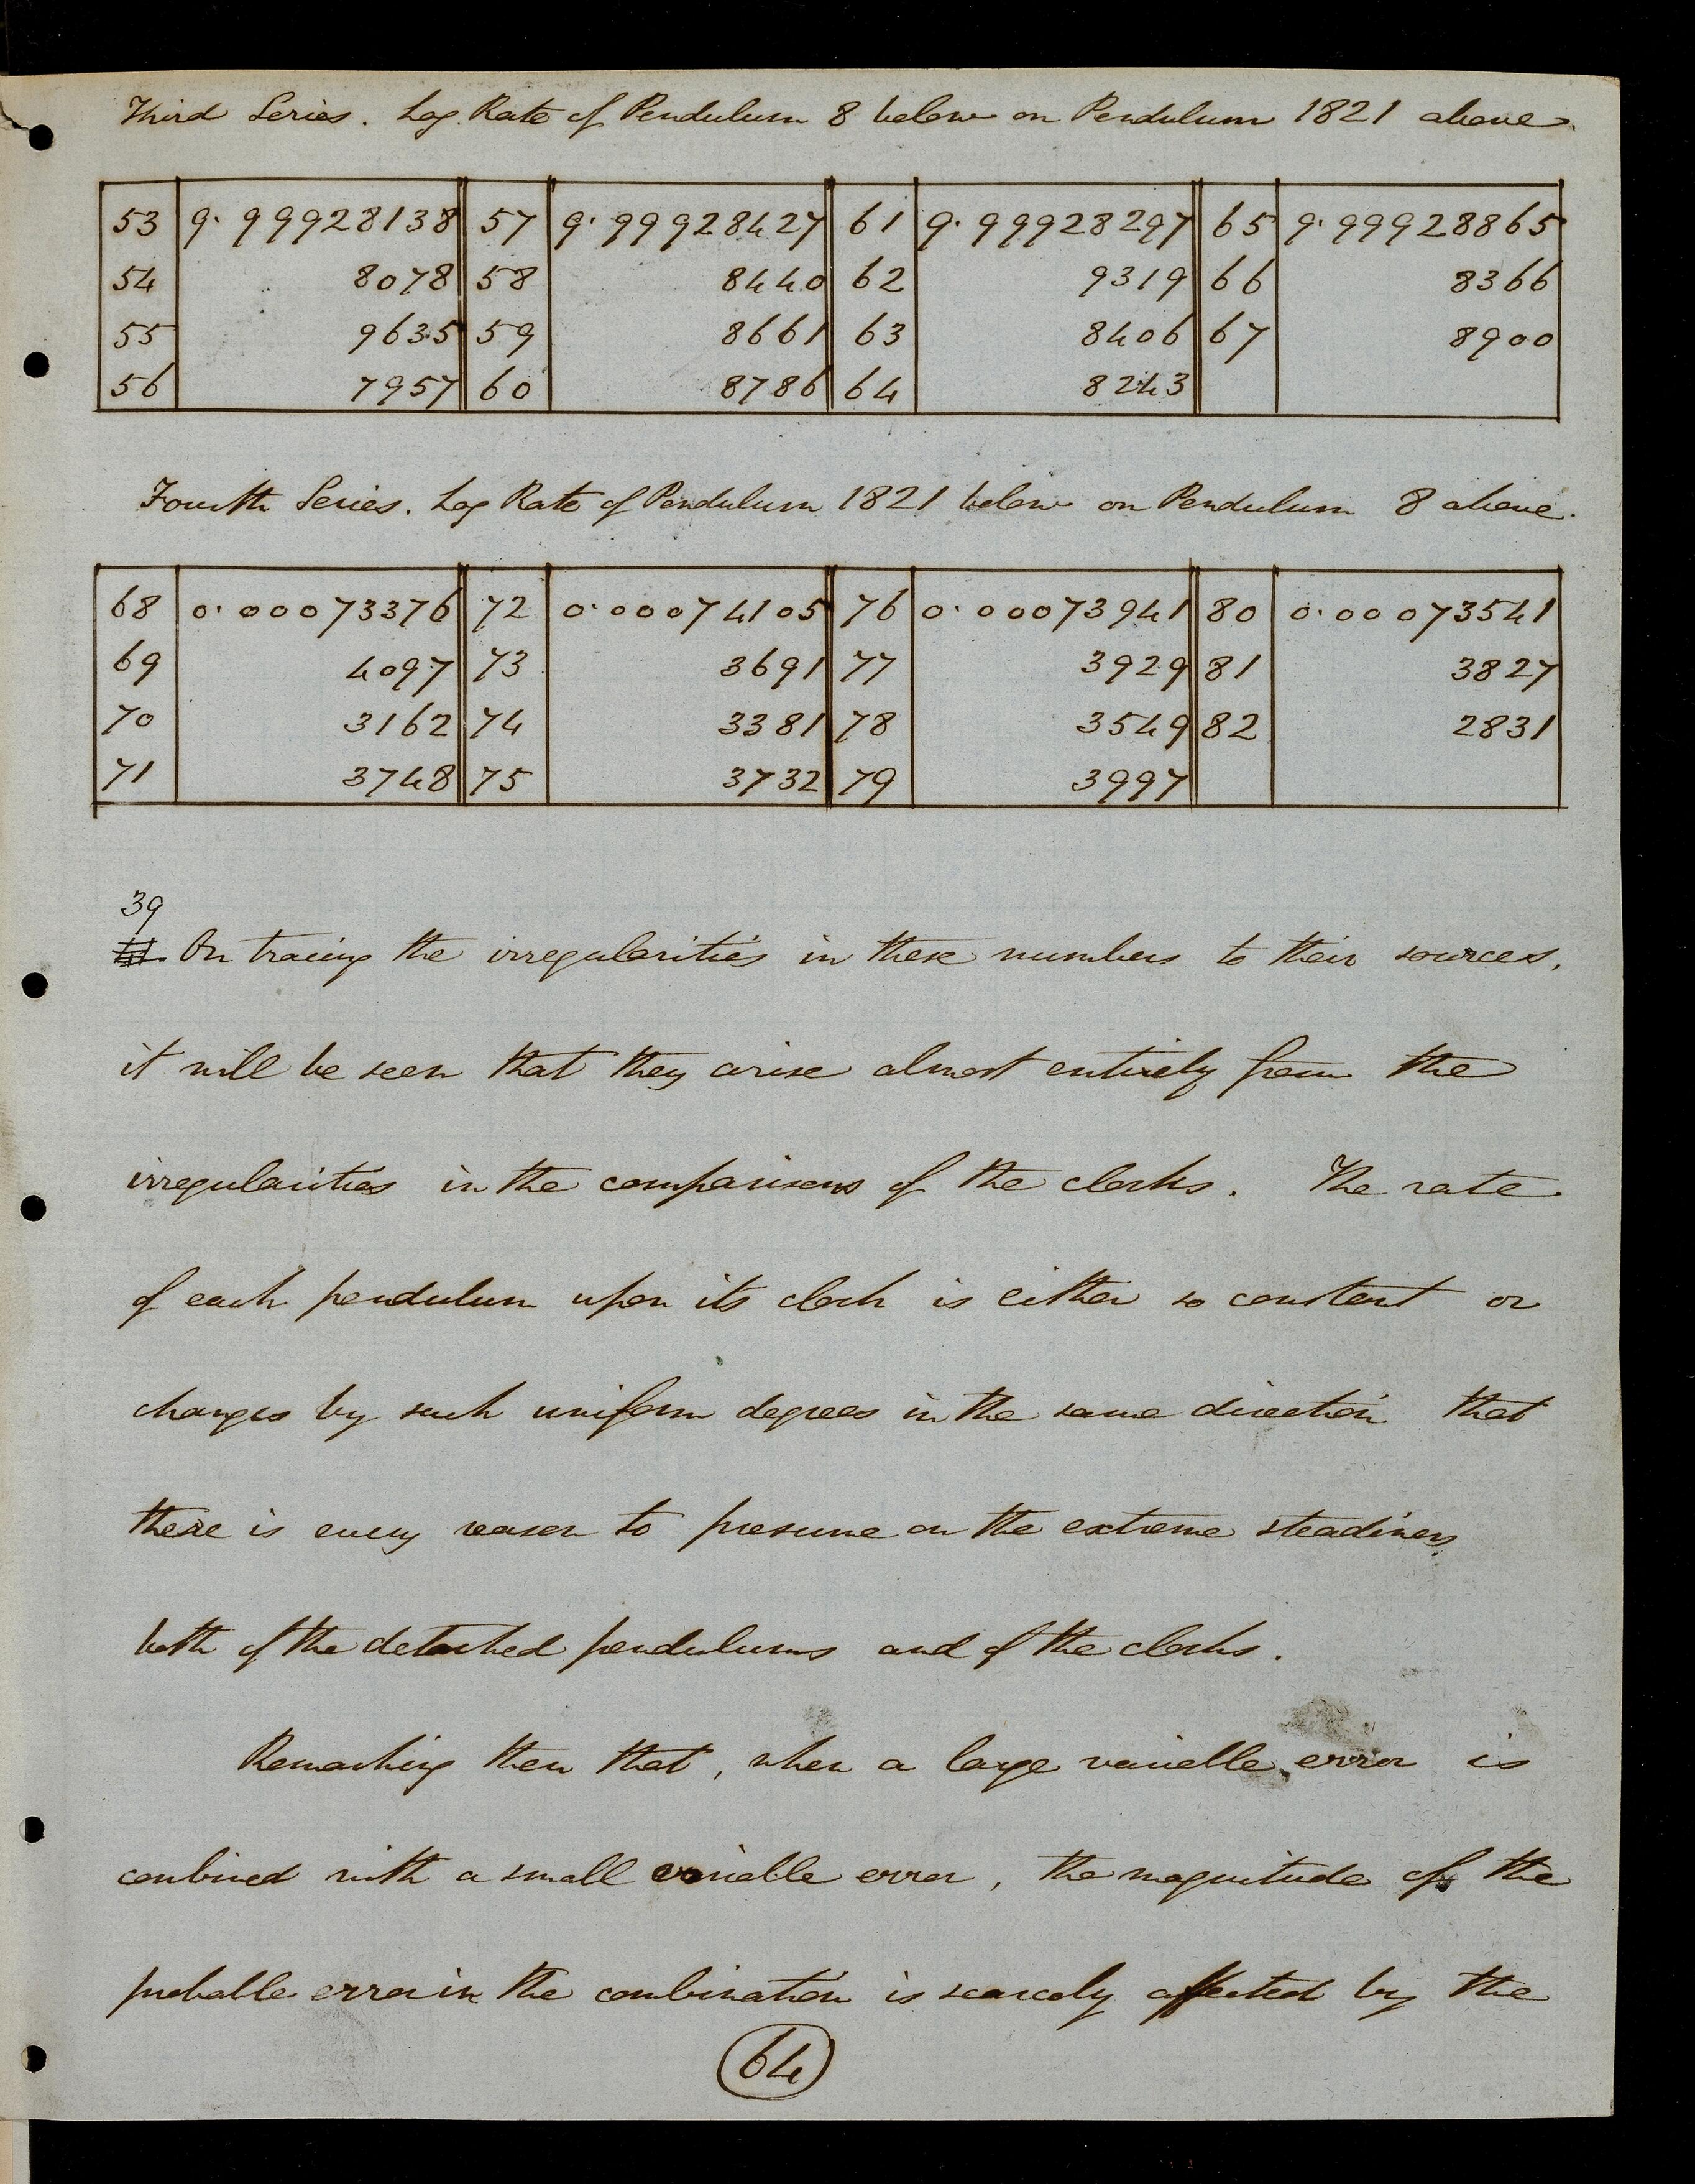 Third Series. Log. Rate of Pendulum 8 below on Pendulum 1821 above.
53 9. 99928138 57 9. 99928427 61 9. 99928297 65 9. 99928865
54 8078 58 8440 62 9319 66 8366
55 9635 59 8661 63 8406 67 8900
56 7957 60 8786 64 8243
Fourth Series. Log Rate of Pendulum 1821 below on Pendulum 8 above.
68 0. 00073376 72 0. 00074105 76 0. 00073941 80 0. 00073541
69 4097 73 3691 77 3929 81 3827
70 3162 74 3381 78 3549 82 2831
71 3748 75 3732 79 3997
39
On tracing the irregularities in these numbers to their sources,
it will be seen that they arise almost entirely from the
irregularities in the comparisons of the clocks. The rate
of each pendulum upon its clock is either so constant or
changes by such uniform degrees in the same direction that
there is every reason to presume on the extreme steadiness
both of the detached pendulums and of the clocks.
Remarking then that, when a large variable error is
combined with a small variable error, the magnitude of the
probable error in the combination is scarcely affected by the
64